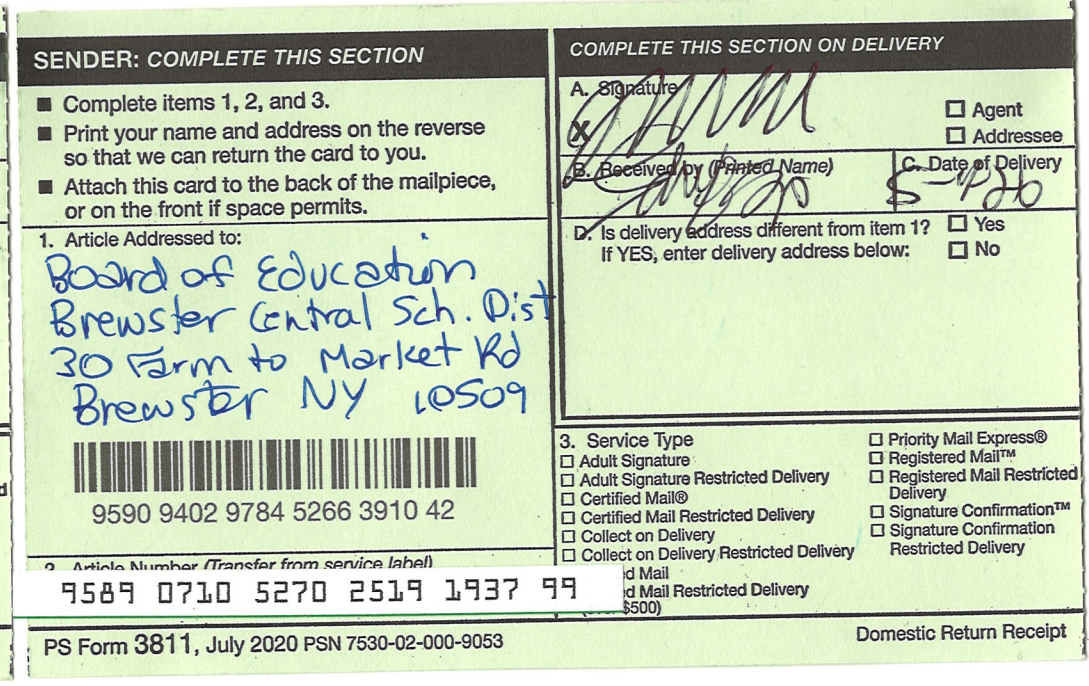 SENDER: COMPLETE THIS SECTION
■ Complete items 1, 2, and 3.
■ Print your name and address on the reverse
so that we can return the card to you.
■ Attach this card to the back of the mailpiece,
or on the front if space permits.
1. Article Addressed to:
Board of Education
Brewster Central Sch. Dist
30 Farm to Market Rd
Brewster NY 10509
9590 9402 9784 5266 3910 42
2. Article Number (Transfer from service label)
9589 0710 5270 2519 1937 99
COMPLETE THIS SECTION ON DELIVERY
A. Signature
X
☐ Agent
☐ Addressee
B. Received by (Printed Name)
C. Date of Delivery
D. Is delivery address different from item 1? ☐ Yes
If YES, enter delivery address below: ☐ No
3. Service Type
☐ Adult Signature
☐ Adult Signature Restricted Delivery
☐ Certified Mail®
☐ Certified Mail Restricted Delivery
☐ Collect on Delivery
☐ Collect on Delivery Restricted Delivery
Mail
Mail Restricted Delivery
$500)
☐ Priority Mail Express®
☐ Registered Mail™
☐ Registered Mail Restricted
Delivery
☐ Signature Confirmation™
☐ Signature Confirmation
Restricted Delivery
PS Form 3811, July 2020 PSN 7530-02-000-9053
Domestic Return Receipt